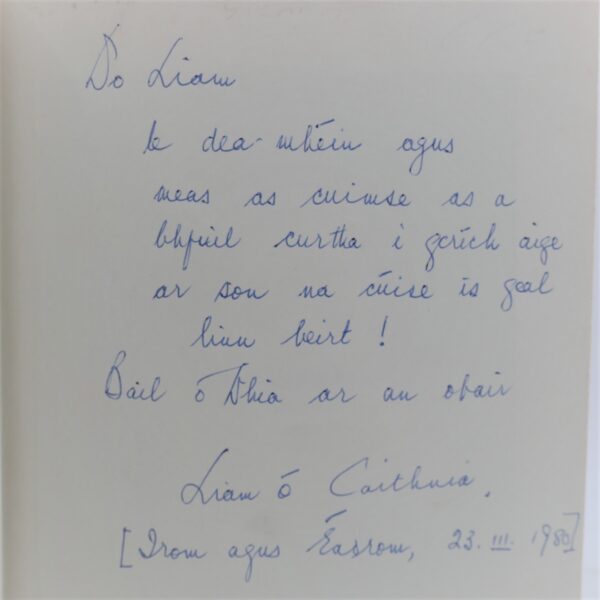 Do Liam
le dea-mhéin agus
meas as cuimse as a
bhfuil curtha i gcrích aige
ar son na cúise is geal
linn beirt!
Bail ó Dhia ar an obair
Liam ó Caithnia.
[Trom agus Éadrom, 23.III.1980]